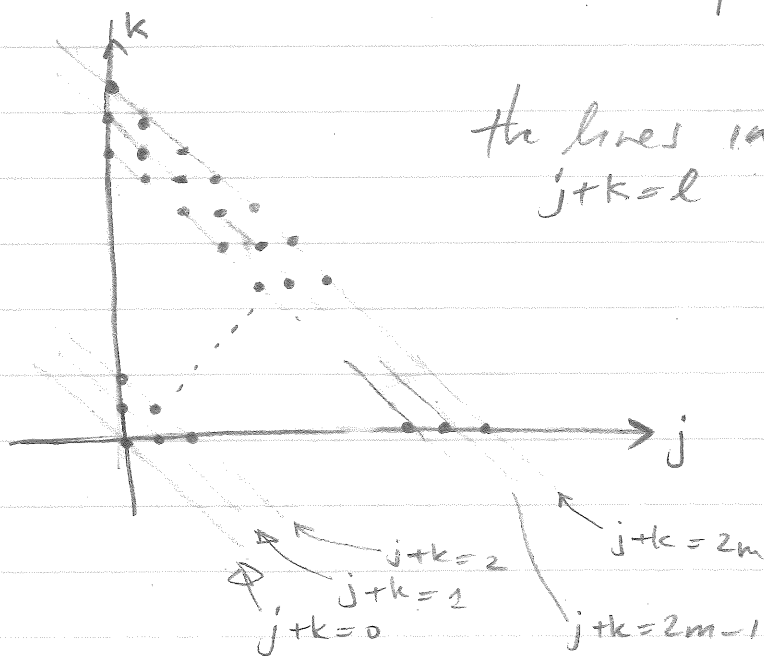 k
the lines in
j+k=l
j
j+k=2m
j+k=2
j+k=1
j+k=0
j+k=2m-1